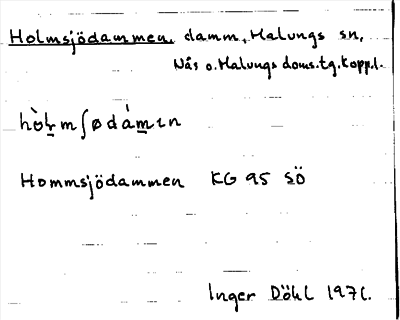 Holmsjödammen, damm, Malungs sn,
Nås o. Malungs doms.tg. Kopp.l.
hòɫm̲ʃødám̲ɪn
Hommsjödammen KG 95 SÖ
Inger Döhl 1971.